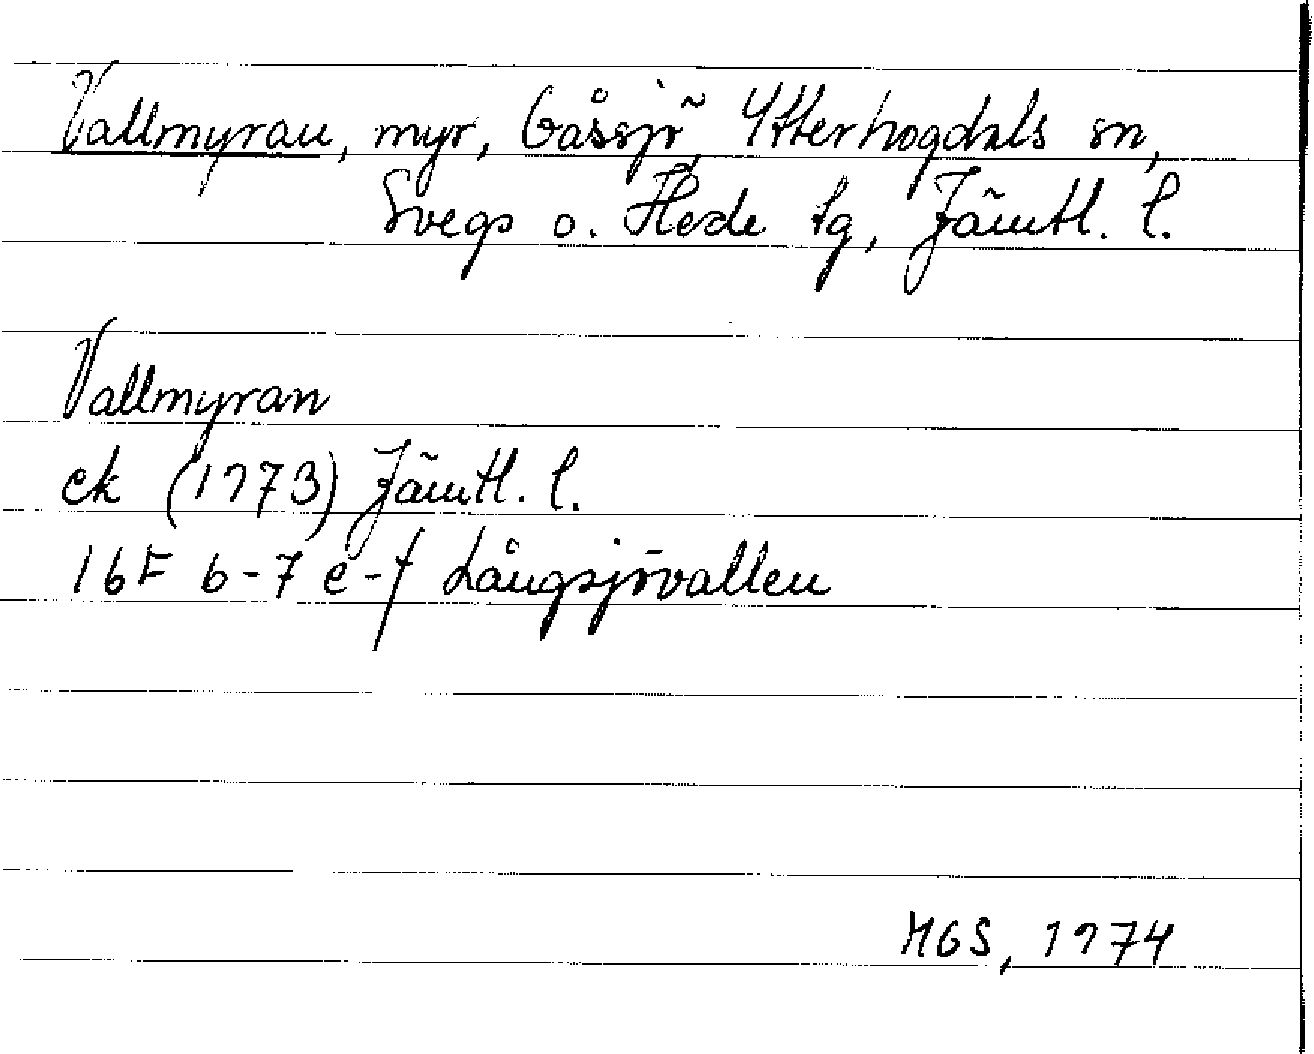 Vallmyran, myr, Gåssjö, Ytterhogdals sn,
Svegs o. Hede tg, Jämtl. l.
Vallmyran
ek (1973) Jämtl. l.
16F 6-7 e-f Långsjövallen
MGS, 1974